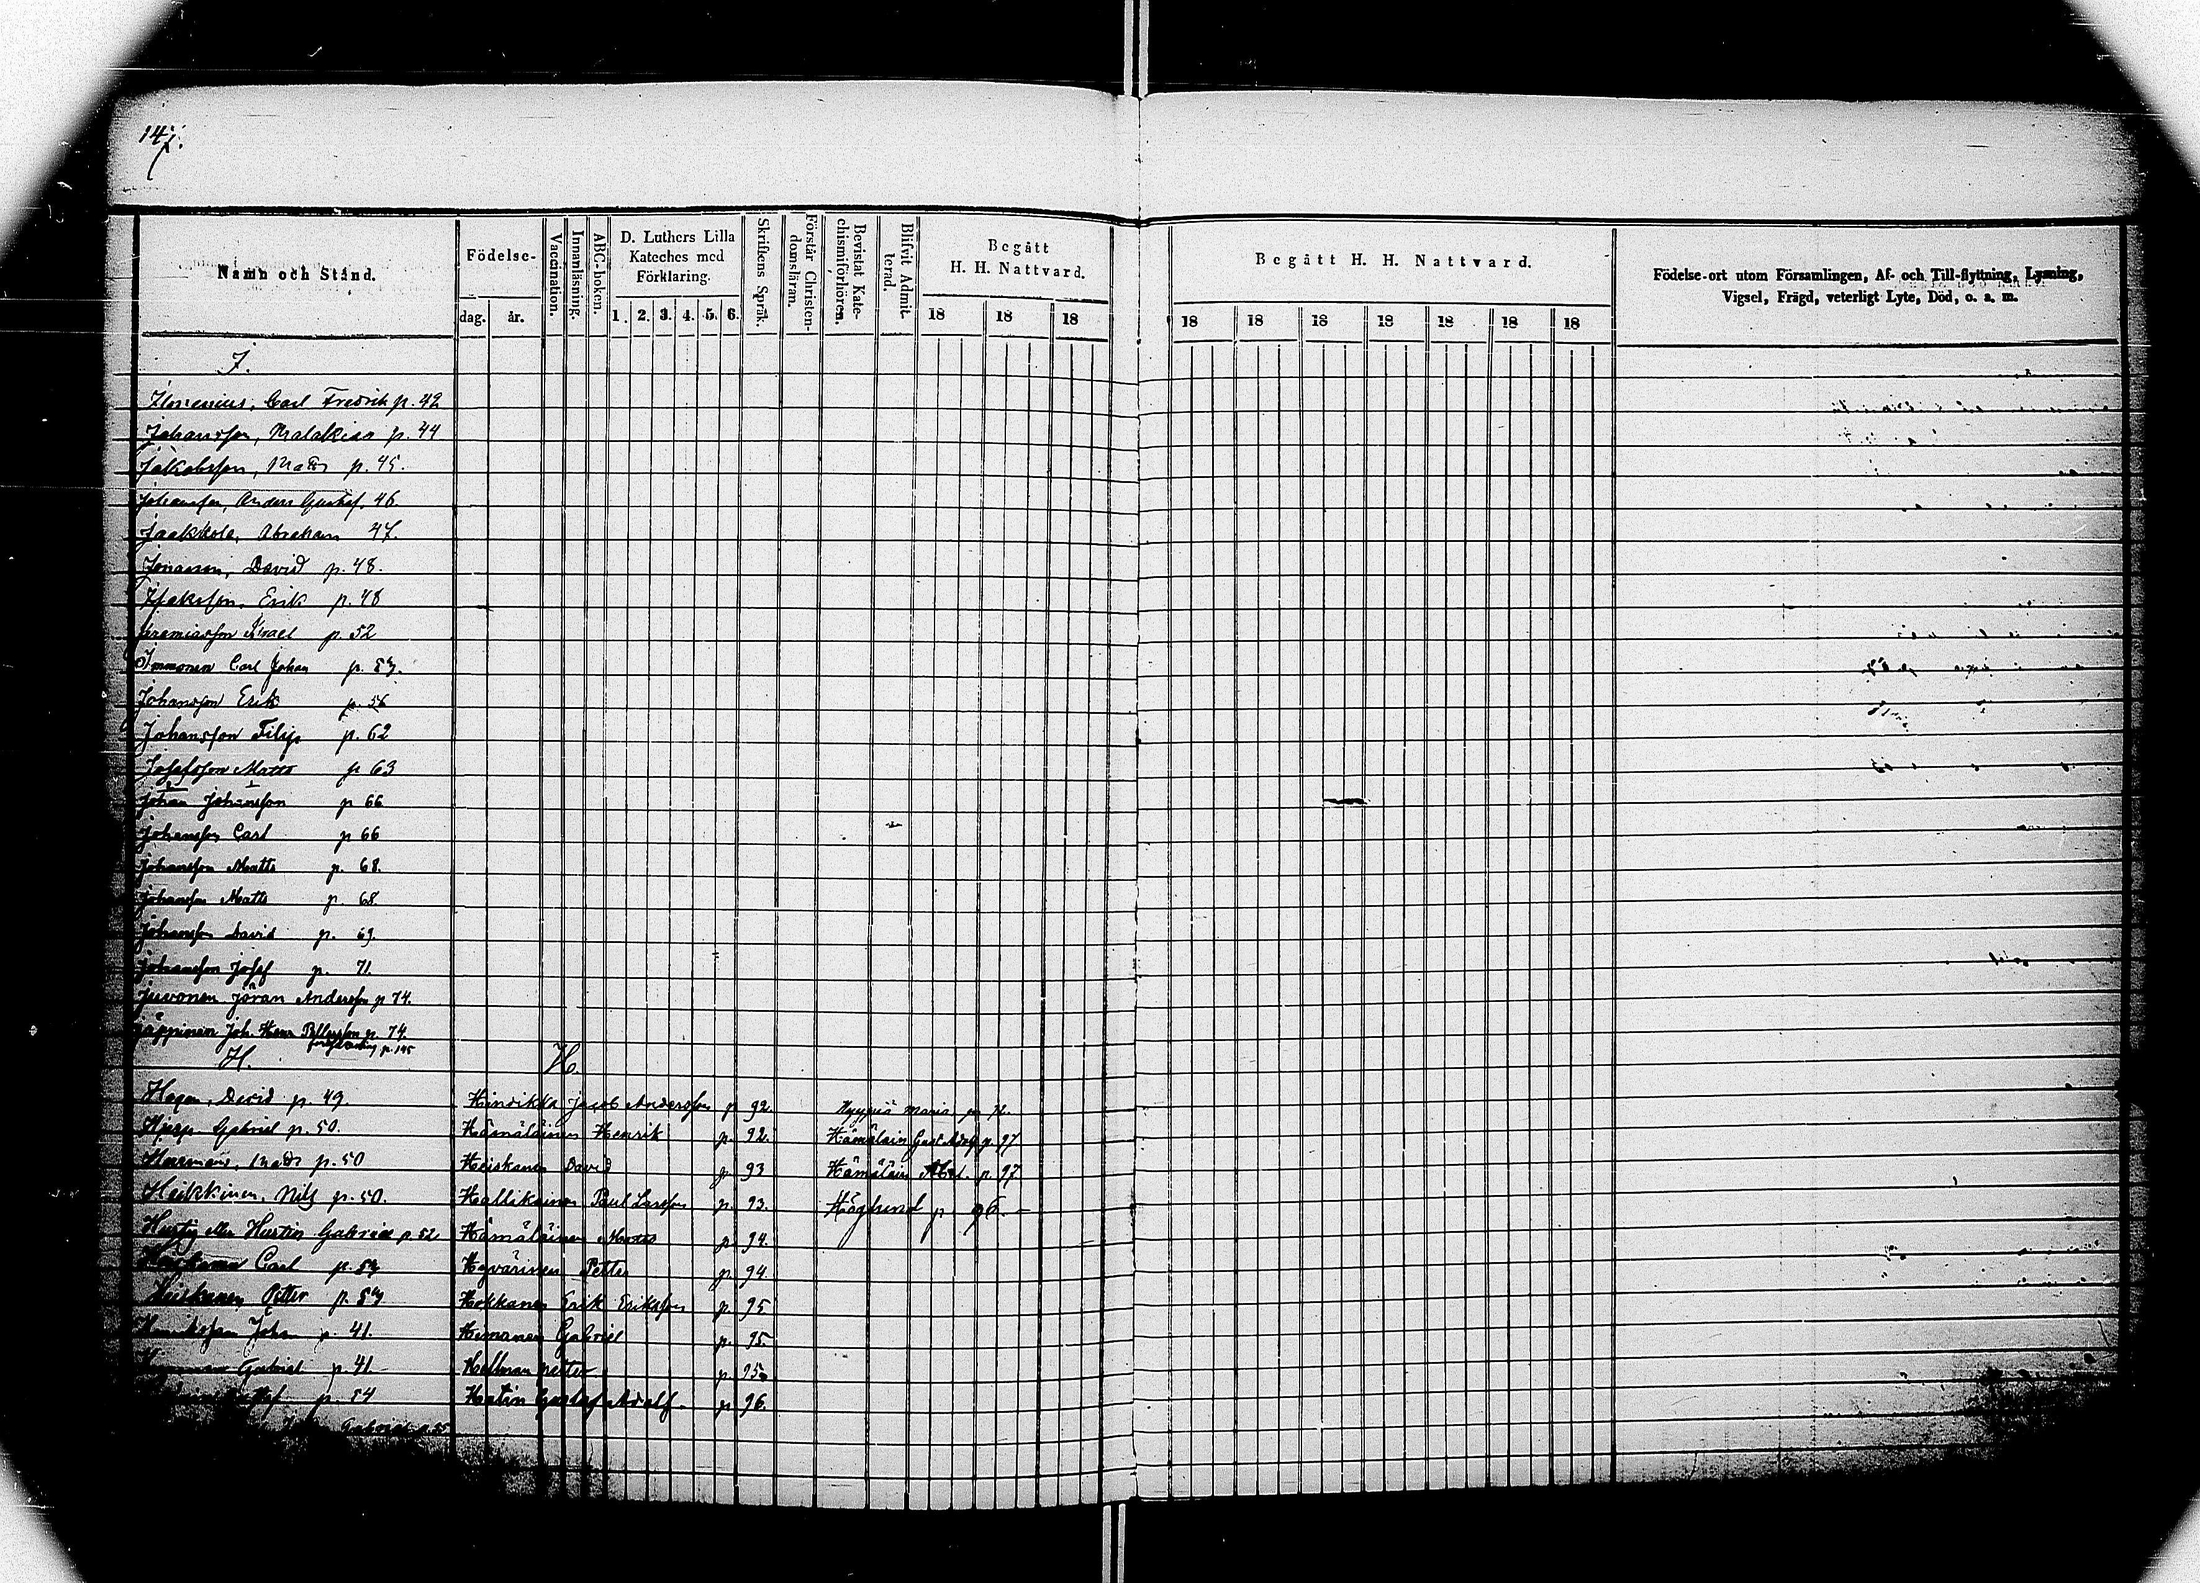 147.
Namn och Stånd.
Födelse-
dag.
år.
Vaccination.
Innanläsning.
ABC-boken.
D. Luthers Lilla
Kateches med
Förklaring.
1. 2. 3. 4. 5. 6.
Skriftens Språk.
Förstår Christen-
domsläran.
Bevistat Kate-
chismiförhören.
Blifvit Admit-
terad.
Begått
H. H. Nattvard.
18 18 18
Begått H. H. Nattvard.
18 18 18 18 18 18 18
Födelse-ort utom Församlingen, Af- och Till-flyttning, Lysning,
Vigsel, Frägd, veterligt Lyte, Död, o. a. m.
J.
Carl Fredrik p. 42
Johansson, Malakias p. 44
Jakobsson, Mats p. 45.
Johansson, Anders Gustaf. 46.
Jaakkola, Abraham 47.
Jonasson, David p. 48.
Isaksson, Erik p. 48
Jeremiasson Israel p. 52
Immonen Carl Johan p. 53.
Johansson Erik p. 56
Johansson Filip p. 62
Josefsson Matts p 63
Johan Johansson p 66
Johansson Carl p 66
Johansson Matts p. 68.
Johansson Matts p. 68.
Johansson David p. 69.
Johansson Josef p. 71.
Juvonen Jöran Andersson p 74.
Jäppinen Joh. Henr. Pettersson p. 74.
fortsättning p. 145
H.
David p. 49.
Gabriel p. 50.
Mats p. 50
Heikkinen, Nils p. 50.
Hartig eller Hartin Gabriel p. 52
Heiskanen Carl p. 53
Heiskanen Petter p. 53
Henriksson Johan p. 41.
Gabriel p. 41
p. 54
Gabriel p. 55
H.
Hindikka Jacob Andersson p 92.
Hämäläinen Henrik p. 92.
Heiskanen David p 93
Hallikainen Paul Larsson p. 93.
Hämäläinen Matts p. 94.
Hyvärinen Petter p. 94.
Hokkanen Erik Eriksson p. 95
Himanen Gabriel p. 95.
Hellman Petter p. 95.
Hartin Gustaf Adolf. p 96.
Hyyppiä Maria p. 72.
Hämäläin Gust Adolf p. 97
Hämäläin Abel. p. 97.
Höglund p 96.